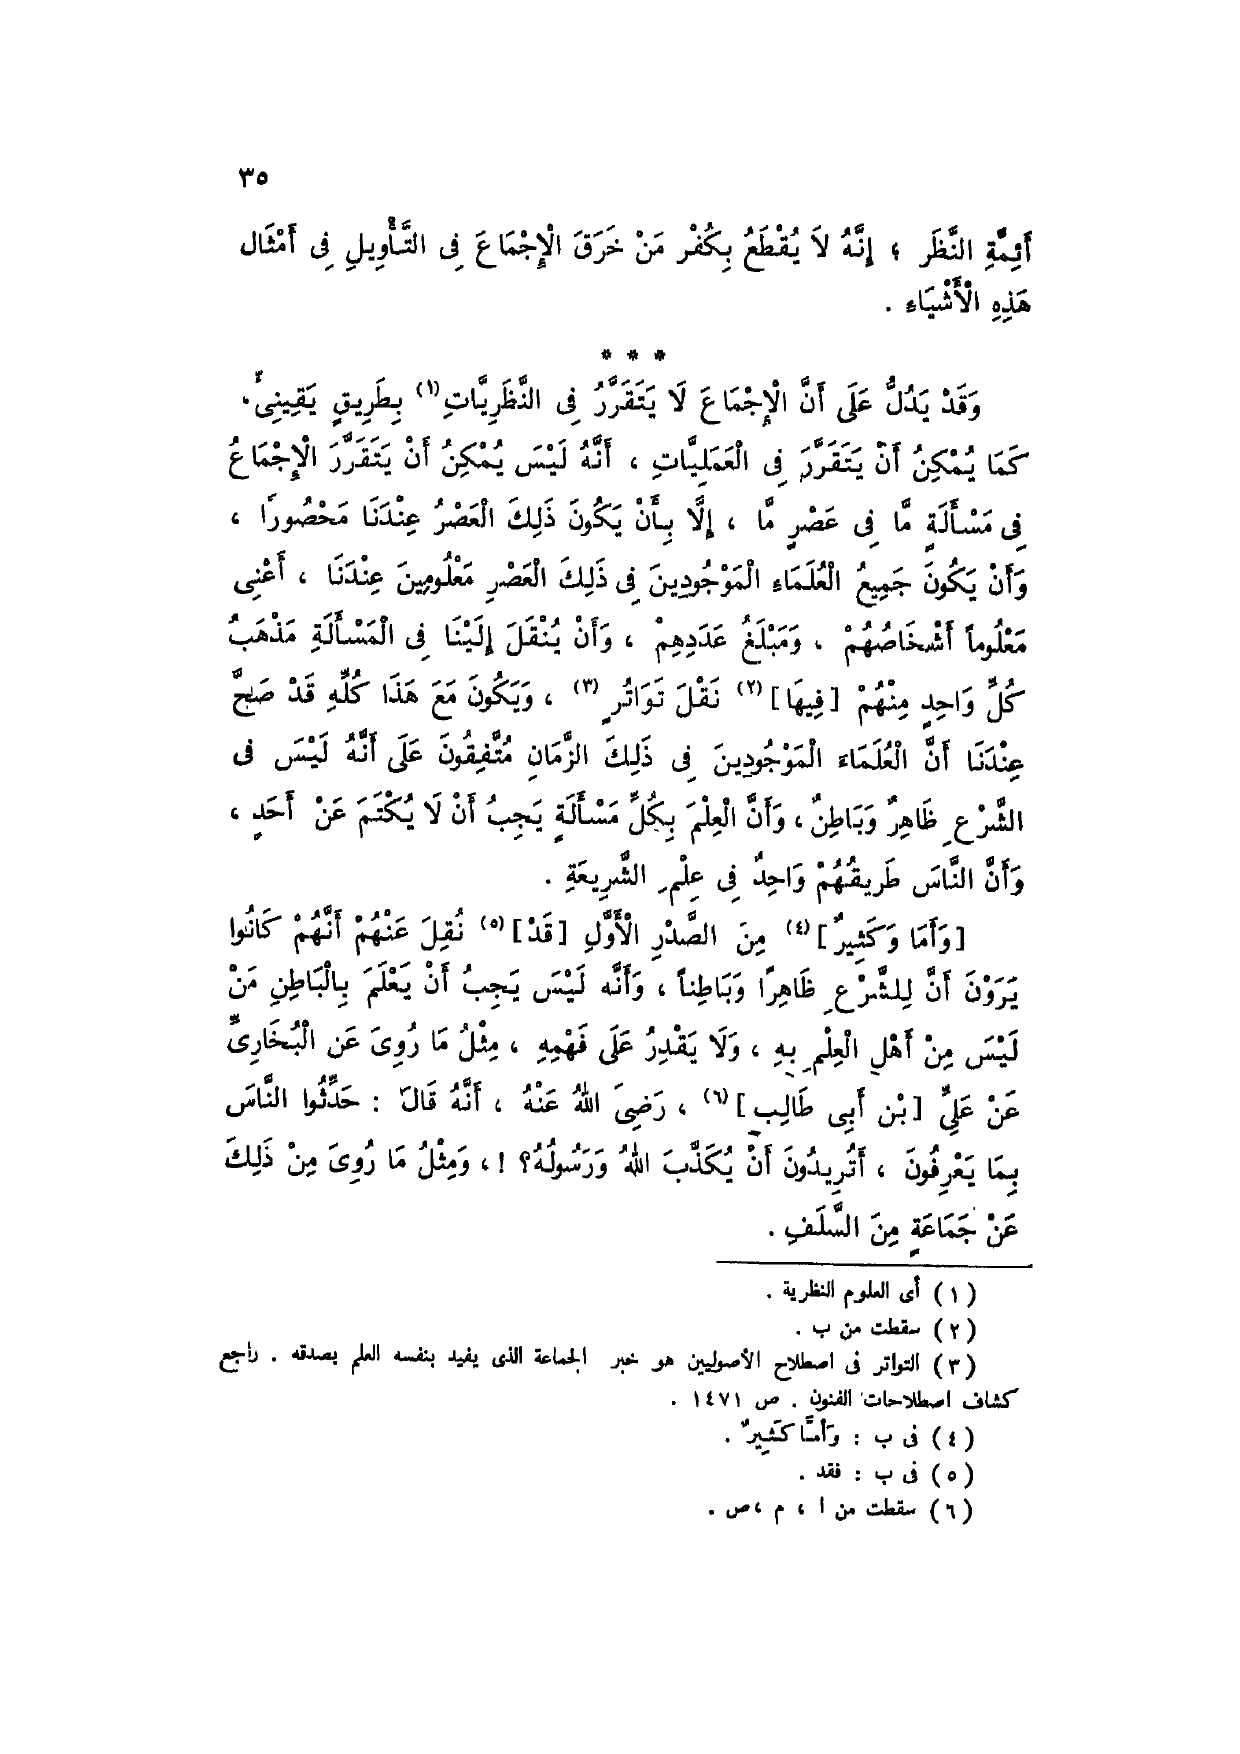 ٣٥
أَئِمَّةِ النَّظَر ؛ إِنَّهُ لاَ يُقْطَعُ بِكُفْر مَنْ خَرَقَ الْإِجْمَاعَ فِى التَّأْوِيلِ فِى أَمْثَال
هَذِهِ الْأَشْيَاء .
* * *
وَقَدْ يَدُلُّ عَلَى أَنَّ الْإِجْمَاعَ لَا يَتَقَرَّرُ فِى النَّظَرِيَّاتِ(١) بِطَرِيقٍ يَقِينِىٍّ ،
كَمَا يُمْكِنُ أَنْ يَتَقَرَّرَ فِى الْعَمَلِيَّاتِ ، أَنَّهُ لَيْسَ يُمْكِنُ أَنْ يَتَقَرَّرَ الْإِجْمَاعُ
فِى مَسْأَلَةٍ مَّا فِى عَصْرٍ مَّا ، إِلَّا بِأَنْ يَكُونَ ذَلِكَ الْعَصْرُ عِنْدَنَا مَحْصُوراً ،
وَأَنْ يَكُونَ جَمِيعُ الْعُلَمَاء الْمَوْجُودِينَ فِى ذَلِكَ الْعَصْرِ مَعْلُومِينَ عِنْدَنَا ، أَعْنِى
مَعْلُوماً أَشْخَاصُهُمْ ، وَمَبْلَغُ عَدَدِهِمْ ، وَأَنْ يُنْقَلَ إِلَيْنَا فِى الْمَسْأَلَةِ مَذْهَبُ
كُلِّ وَاحِدٍ مِنْهُمْ [فِيهَا](٢) نَقْلَ تَوَاتُرٍ(٣) ، وَيَكُونَ مَعَ هَذَا كُلِّهِ قَدْ صَحَّ
عِنْدَنَا أَنَّ الْعُلَمَاءَ الْمَوْجُودِينَ فِى ذَلِكَ الزَّمَانِ مُتَّفِقُونَ عَلَى أَنَّهُ لَيْسَ فى
الشَّرْعِ ظَاهِرٌ وَبَاطِنٌ ، وَأَنَّ الْعِلْمَ بِكُلِّ مَسْأَلَةٍ يَجِبُ أَنْ لَا يُكْتَمَ عَنْ أَحَدٍ ،
وَأَنَّ النَّاسَ طَرِيقُهُمْ وَاحِدٌ فِى عِلْمِ الشَّرِيعَةِ .
[وَأَمَا وَكَثِيرٌ](٤) مِنَ الصَّدْرِ الْأَوَّلِ [قَدْ](٥) نُقِلَ عَنْهُمْ أَنَّهُمْ كَانُوا
يَرَوْنَ أَنَّ لِلشَّرْعِ ظَاهِرًا وَبَاطِناً ، وَأَنَّه لَيْسَ يَجِبُ أَنْ يَعْلَمَ بِالْبَاطِنِ مَنْ
لَيْسَ مِنْ أَهْلِ الْعِلْمِ بِهِ ، وَلَا يَقْدِرُ عَلَى فَهْمِهِ ، مِثْلُ مَا رُوِىَ عَن الْبُخَارِىِّ
عَنْ عَلِىٍّ [بْن أَبِى طَالِب](٦) ، رَضِىَ اللهُ عَنْهُ ، أَنَّهُ قَالَ : حَدِّثُوا النَّاسَ
بِمَا يَعْرِفُونَ ، أَتُرِيدُونَ أَنْ يُكَذَّبَ اللهُ وَرَسُولُهُ؟ ! ، وَمِثْلُ مَا رُوِىَ مِنْ ذَلِكَ
عَنْ جَمَاعَةٍ مِنَ السَّلَفِ .
(١) أى العلوم النظرية .
(٢) سقطت من ب .
(٣) التواتر فى اصطلاح الأصوليين هو خبر الجماعة الذى يفيد بنفسه العلم بصدقه . راجع
كشاف اصطلاحات الفنون . ص ١٤٧١ .
(٤) فى ب : وَأَمَّا كَثِيرٌ .
(٥) فى ب : فقد .
(٦) سقطت من ا ، م ، ص .